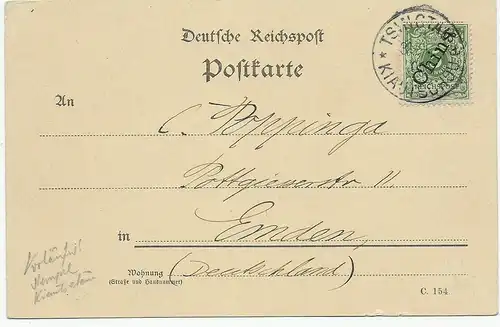 Deutsche Reichspost
Postkarte
TSINGTAU
KIAUTSCHOU
China
An
C. Poppinga
Pottgieserstr 11
in Emden
(Deutschland)
Wohnung
(Straße und Hausnummer)
C. 154
Vorläufer!
Stempel